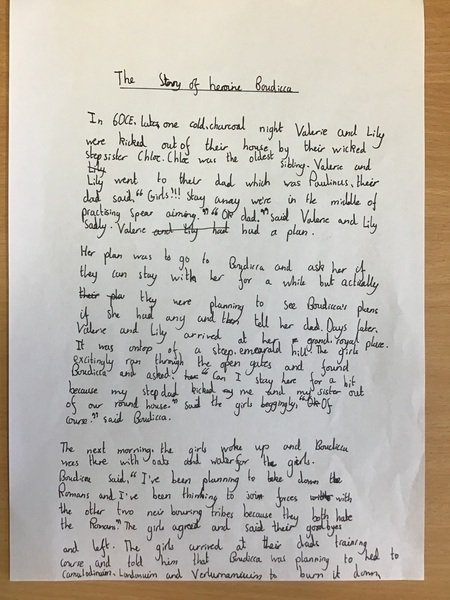 The Story of heroine Boudicca
In 60CE, late, one cold, charcoal night Valerie and Lily
were kicked out of their house by their wicked
stepsister Chloe. Chloe was the oldest sibling. Valerie and
Lily
Lily went to their dad which was Paulinus, their
dad said, "Girls!!! Stay away we're in the middle of
practising spear aiming."" "Ok dad." said Valerie and Lily
sadly. Valerie and Lily had had a plan.
Her plan was to go to Boudicca and ask her if
they can stay with her for a while but actually
their plan they were planning to see Boudicca's plans
if she had any and then tell her dad. Days later,
Valerie and Lily arrived at her grand, royal place.
It was ontop of a steep, emearald hill. The girls
excitingly ran through the open gates and found
Boudicca and asked, "Can I stay here for a bit
because my step dad kicked me and my sister out
of our round house." Said the girls beggingly, "Ok Of
course." said Boudicca.
The next morning, the girls woke up and Boudicca
was there with oats and water for the girls.
Boudicca said, "I've been planning to take down the
Romans and I've been thinking to join forces with
the other two neir bouring tribes because they both hate
the Romans." The girls agreed and said their goodbyes
and left. The girls arrived at their dads training
course and told him that Boudicca was planning to hed to
Camulodinum, Londonium and Verlumanium to burn it down